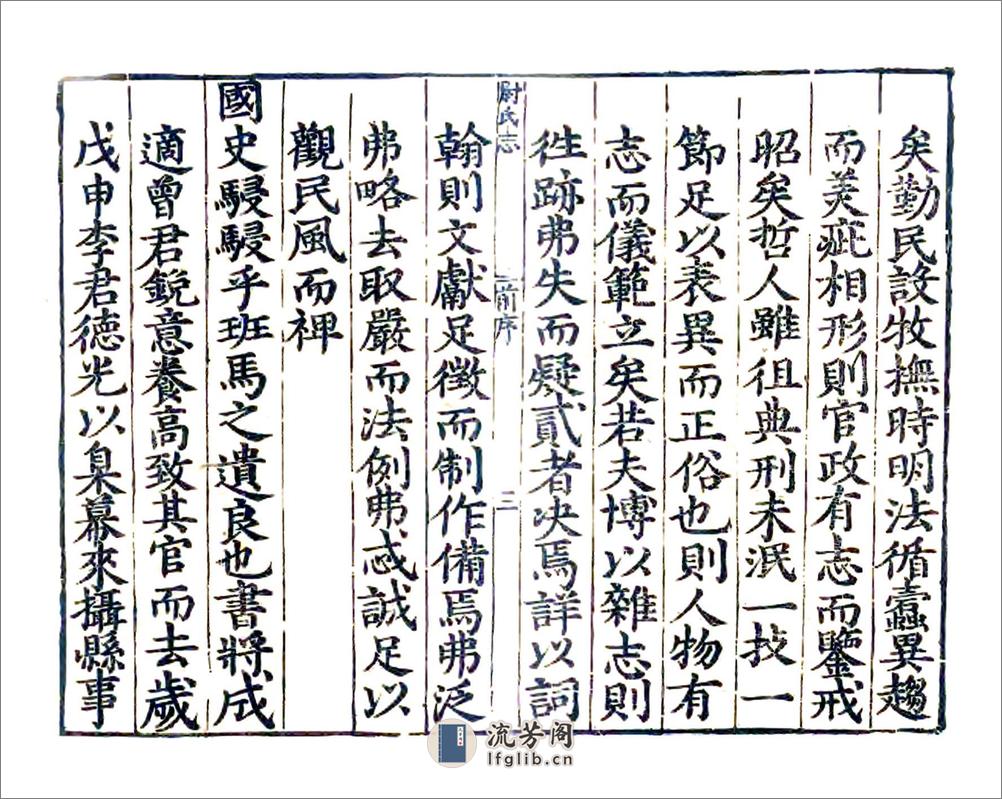 矣勤民設牧撫時明法循蠹異趨
而美疵相形則官政有志而鑒戒
昭矣哲人雖徂典刑未泯一技一
節足以表異而正俗也則人物有
志而儀範立矣若夫博以雜志則
徃跡弗失而疑貳者决焉詳以詞
尉氏志 前序 三
翰則文獻足徵而制作備焉弗泛
弗略去取嚴而法例弗忒誠足以
觀民風而裨
國史駸駸乎班馬之遺良也書將成
適曾君銳意養高致其官而去歲
戊申李君德光以臬幕來攝縣事
流芳阁
lfglib.cn